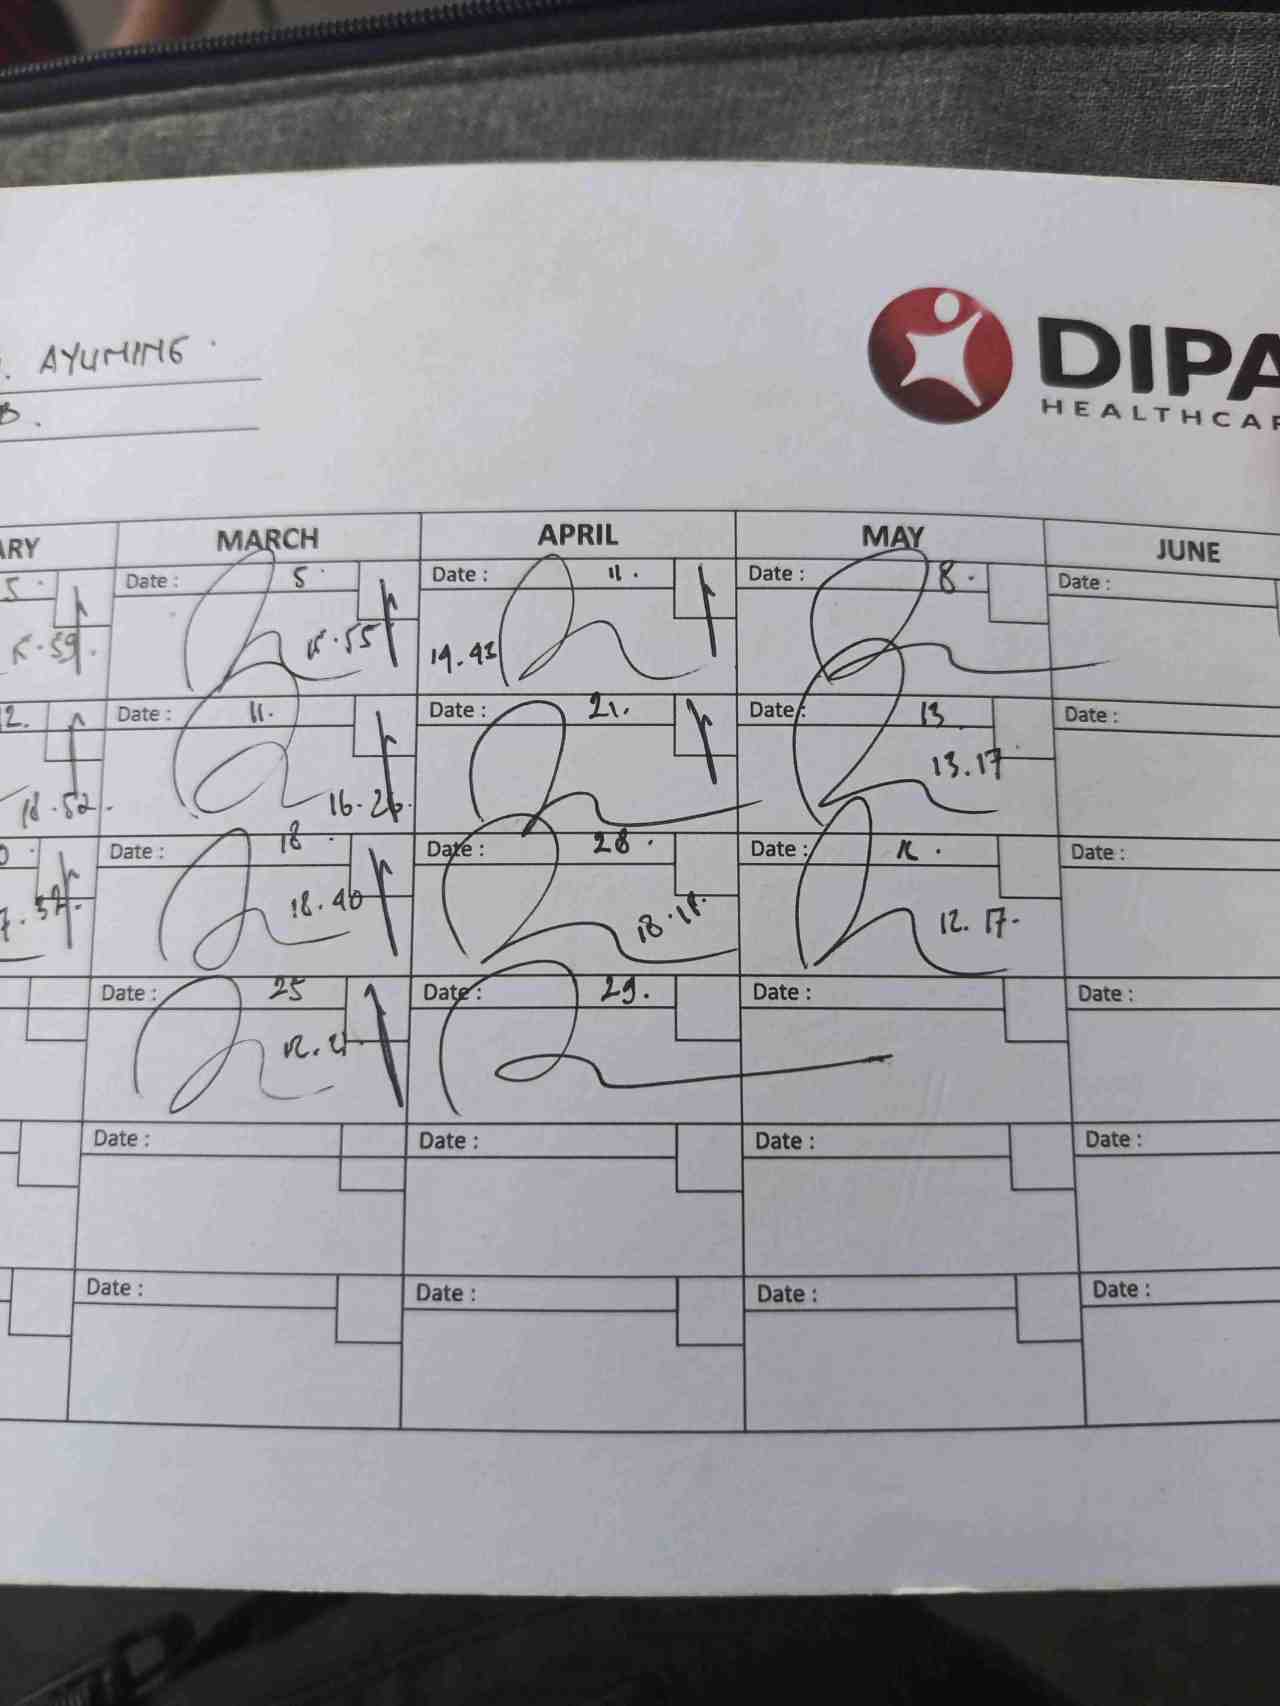 AYUMING.
B.
DIPA
HEALTHCAR
ARY MARCH APRIL MAY JUNE
5. Date : 5. Date : 11. Date : 8. Date :
15.55 19.43
12. Date : 11. Date : 21. Date : 13 Date :
18.52. 16.26. 13.17
Date : 18. Date : 28. Date : Date :
7.32. 18.40 18.18. 12.17.
Date : 25 Date : 29. Date : Date :
12.21
Date : Date : Date : Date :
Date : Date : Date : Date :